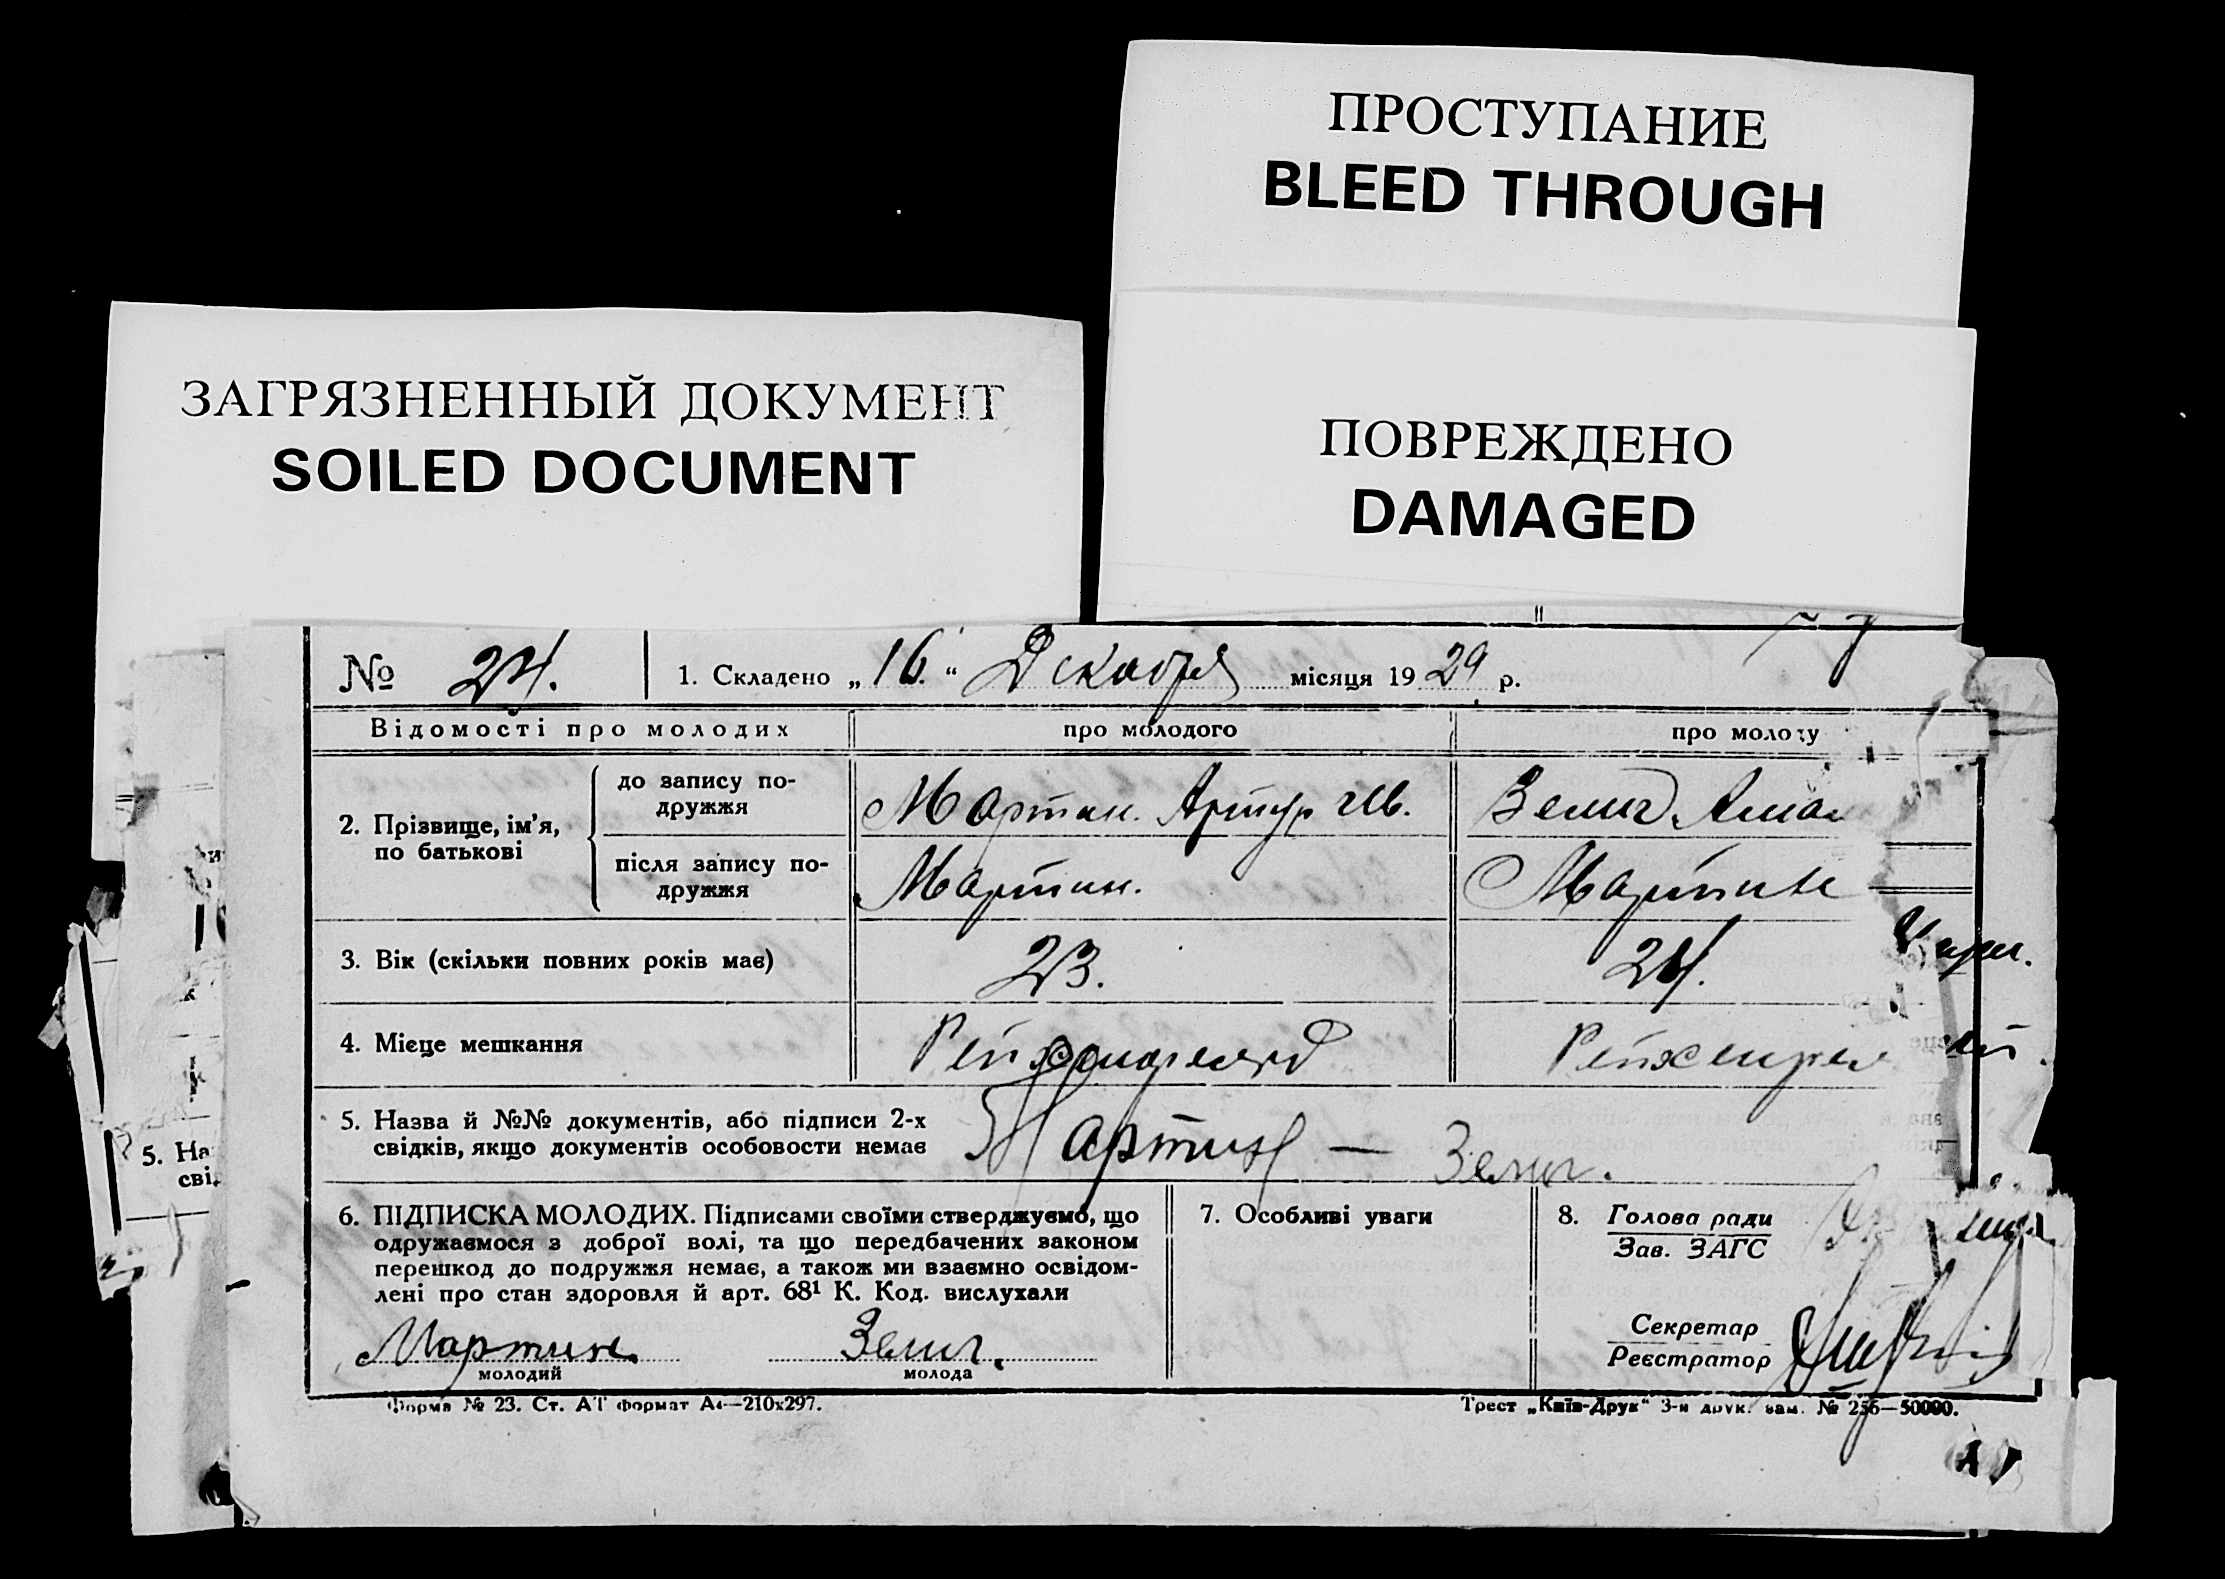 ПРОСТУПАНИЕ
BLEED THROUGH
ЗАГРЯЗНЕННЫЙ ДОКУМЕНТ
SOILED DOCUMENT
ПОВРЕЖДЕНО
DAMAGED
№ 24. 1. Складено „16.“ Декабря місяця 1929 р.
Відомості про молодих про молодого про молоду
2. Прізвище, ім’я, по батькові
до запису подружжя Мартин. Артур Ив. Зелиг. Амал
після запису подружжя Мартин. Мартин
3. Вік (скільки повних років має) 23. 24.
4. Місце мешкання Рейхенфельд Рейхенфел
5. Назва й №№ документів, або підписи 2-х
свідків, якщо документів особовости немає Мартин — Зелиг.
6. ПІДПИСКА МОЛОДИХ. Підписами своїми стверджуємо, що
одружаємося з доброї волі, та що передбачених законом
перешкод до подружжя немає, а також ми взаємно освідом-
лені про стан здоровля й арт. 68¹ К. Код. вислухали
Мартин Зелиг.
молодий молода
7. Особливі уваги
8. Голова ради
Зав. ЗАГС
Секретар
Реєстратор
Форма № 23. Ст. АТ формат А4—210х297.
Трест „Київ-Друк“ 3-я друк. зам. № 256—50000.
5. На
сві